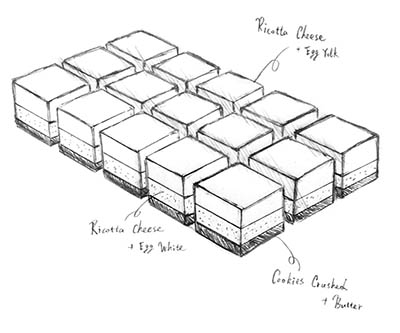 Ricotta Cheese
+ Egg Yolk
Ricotta Cheese
+ Egg White
Cookies Crushed
+ Butter